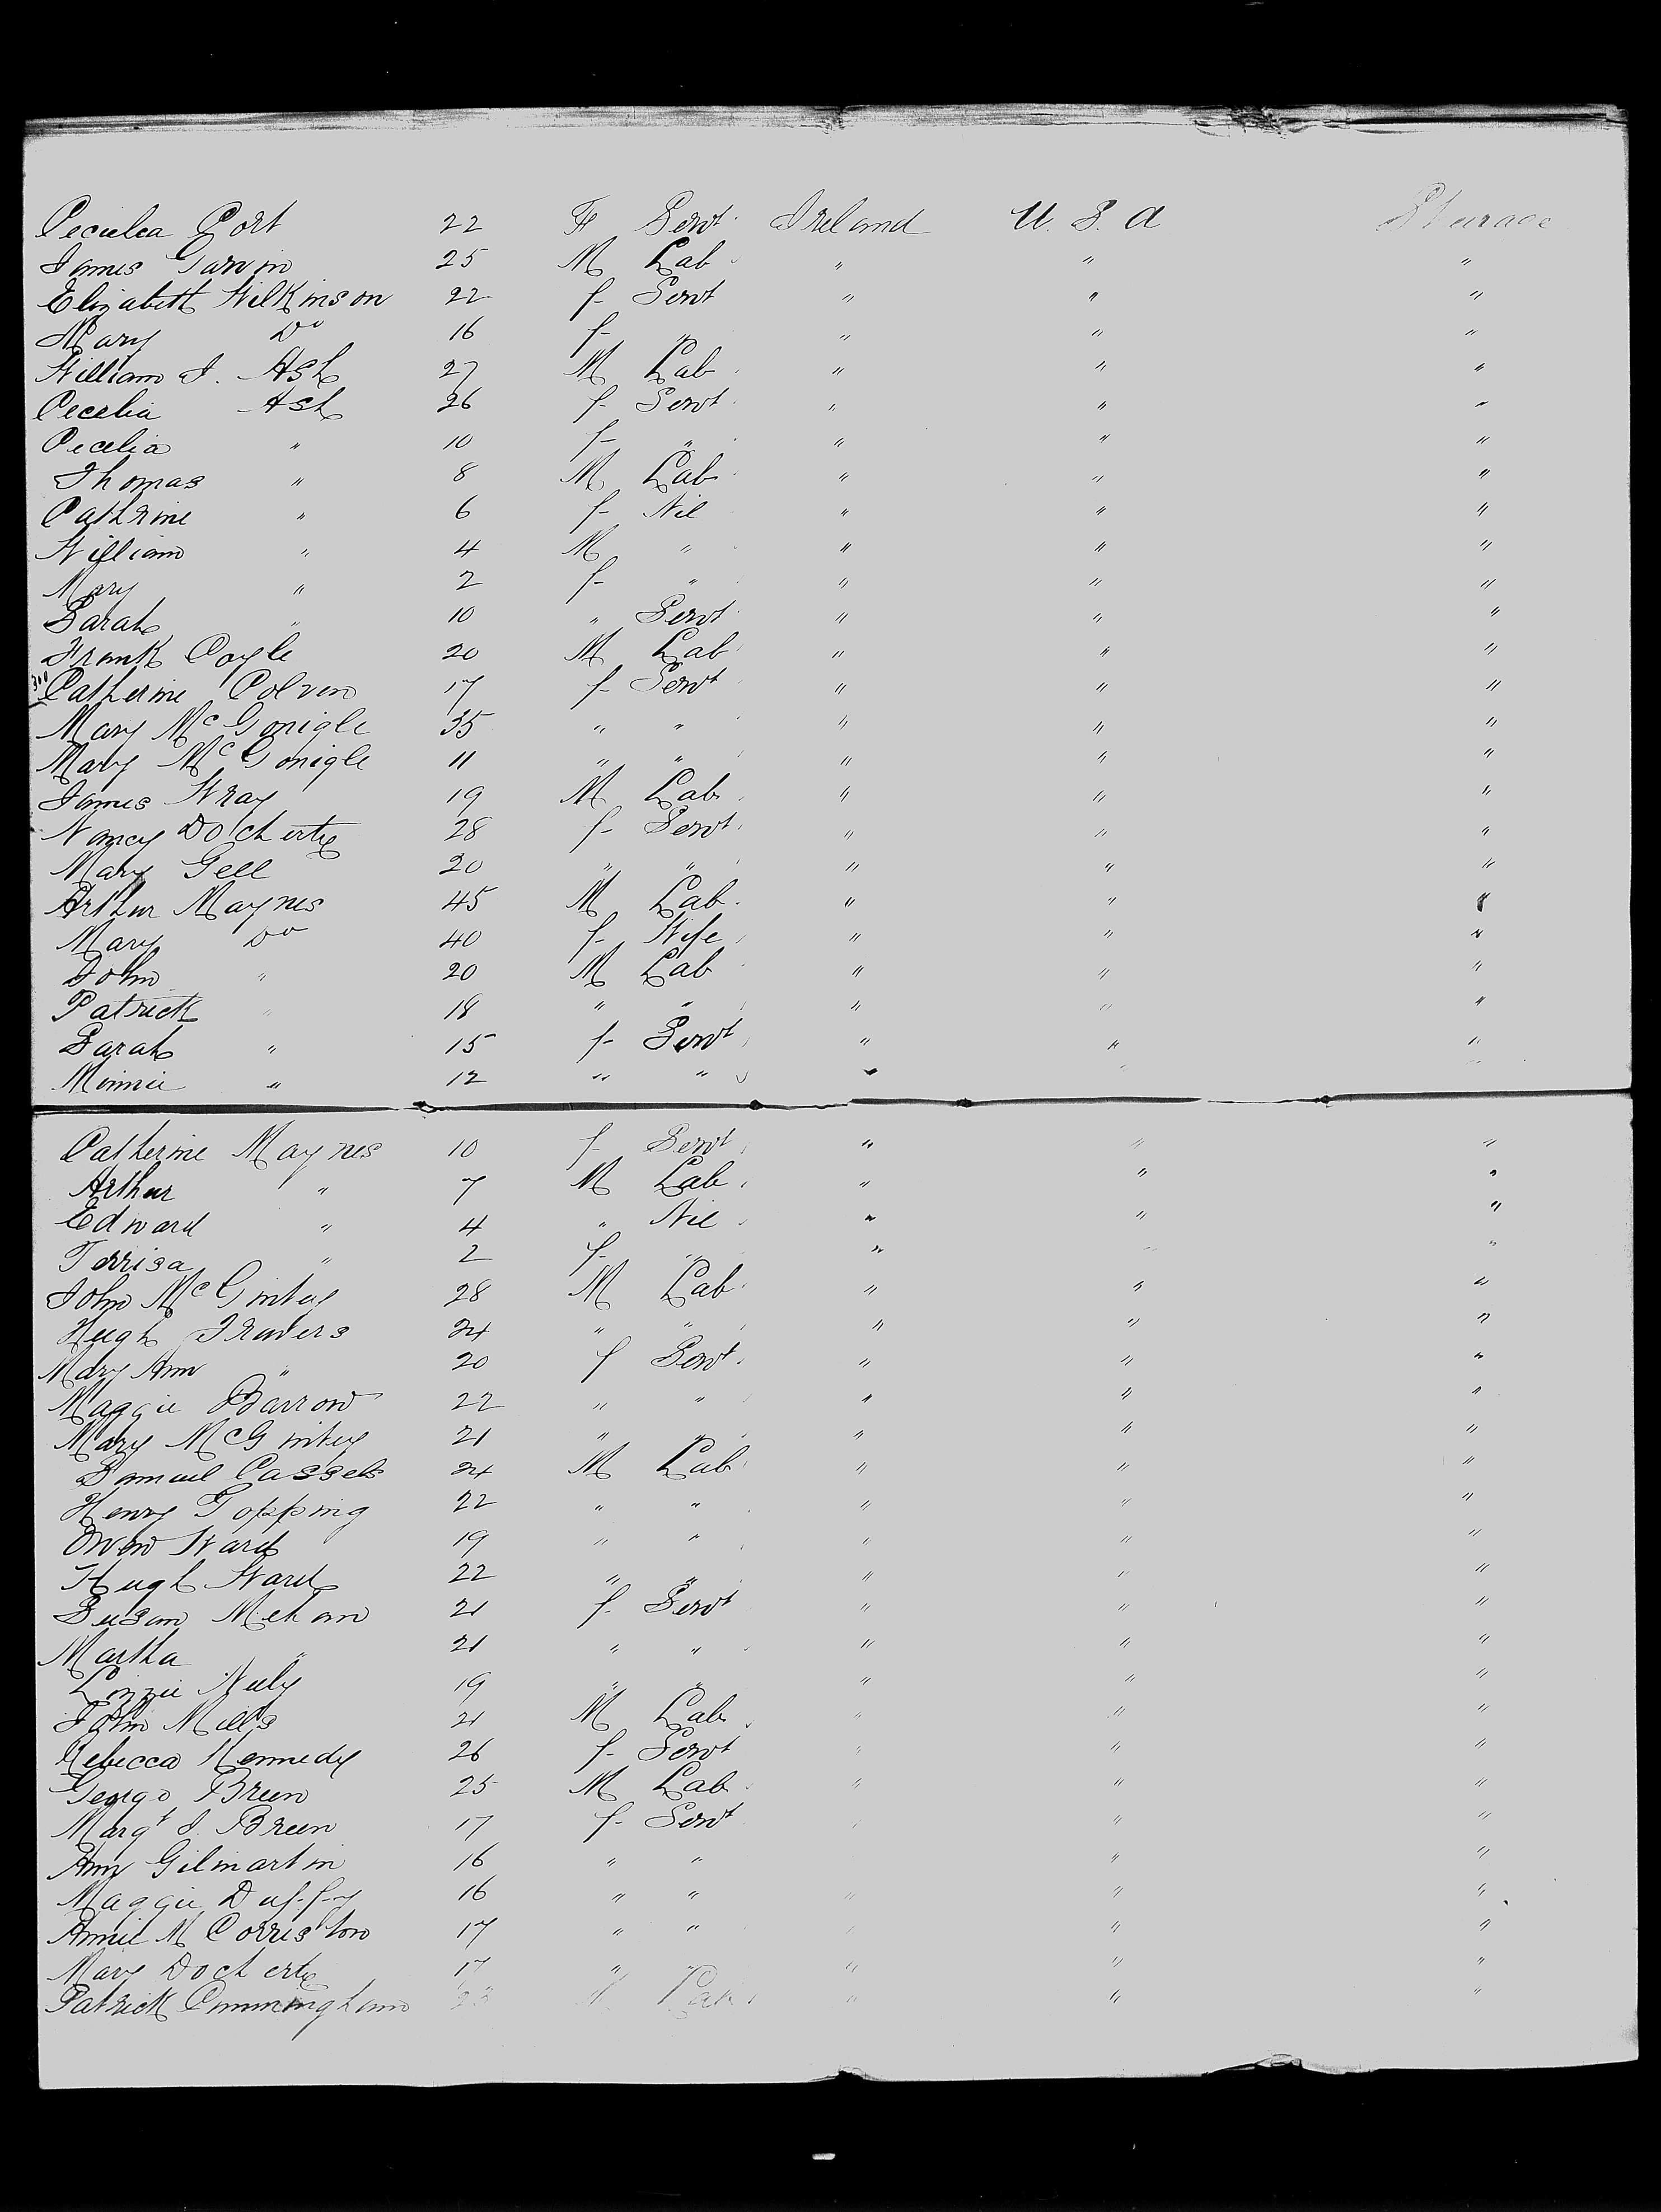 Cecielia Port 22 F Servt. Ireland U. S. A Steerage
James Garvin 25 M Lab. " " "
Elizabeth Wilkinson 22 f Servt " " "
Mary Do 16 f " " " "
William J. Ash 27 M Lab. " " "
Cecelia Ash 26 f Servt. " " "
Cecelia " 10 f " " " "
Thomas " 8 M Lab. " " "
Cathrine " 6 f Nil " " "
William " 4 M " " " "
Mary " 2 f " " " "
Sarah " 10 " Servt. " " "
Frank Coyle 20 M Lab. " " "
300 Catherine Colven 17 f Servt " " "
Mary McGonigle 35 " " " " "
Mary McGonigle 11 " " " " "
James Wray 19 M Lab. " " "
Nancy Docherty 28 f Servt. " " "
Mary Gell 20 " " " " "
Arthur Maynes 45 M Lab. " " "
Mary Do 40 f Wife " " "
John " 20 M Lab " " "
Patrick " 18 " " " " "
Sarah " 15 f Servt " " "
Minnie " 12 " " " " "
Catherine Maynes 10 f Servt " " "
Arthur " 7 M Lab. " " "
Edward " 4 " Nil " " "
Terrisa " 2 f " " " "
John McGinty 28 M Lab. " " "
Hugh Travers 24 " " " " "
Mary Ann " 20 f Servt. " " "
Maggie Barrow 22 " " " " "
Mary McGinty 21 " " " " "
Samuel Cassels 24 M Lab. " " "
Henry Topping 22 " " " " "
Owen Ward 19 " " " " "
Hugh Ward 22 " " " " "
Susan Mehan 21 f Servt " " "
Martha " 21 " " " " "
Lizzie Neely 19 " " " " "
John Mills 21 M Lab. " " "
Rebecca Kennedy 26 f Servt " " "
George Breen 25 M Lab. " " "
Margt J. Breen 17 f Servt " "
Ann Gilmartin 16 " " " "
Maggie Duffy 16 " " " " "
Annie M Corriston 17 " " " " "
Mary Docherty 17 " " " " "
Patrick Cunningham Lab. " " "